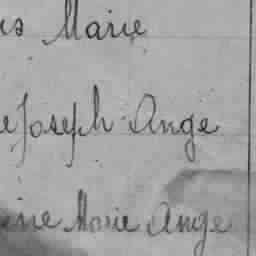 is Marie
e Joseph Ange
ine Marie Ange